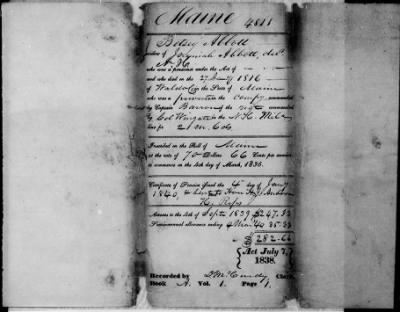 Maine 4811
Betsey Abbott
widow of Jeremiah Abbott, dec'd
N. H.
who was a pensioner under the Act of
and who died on the 27 1816
of Waldo Co. in the State of Maine
who was a private in the company commanded
by Captain Barron of the regt commanded
by Col Wingate in the N.H. Mil
line for 2 m. 6 d
Inscribed on the Roll of Maine
at the rate of 70 Dollars 66 Cents per annum
to commence on the 4th day of March, 1836.
Certificate of Pension issued the 4 day of Jany
1840, & sent to Hon H. J. Anderson
H. Reps
Arrears to the 4th of Sept 1839 $247.33
Semi-annual allowance ending 4 Mar 40 35.33
282.66
Act July 7,
1838.
Recorded by D. McCurdy Clerk,
Book A. Vol. 1. Page 1.